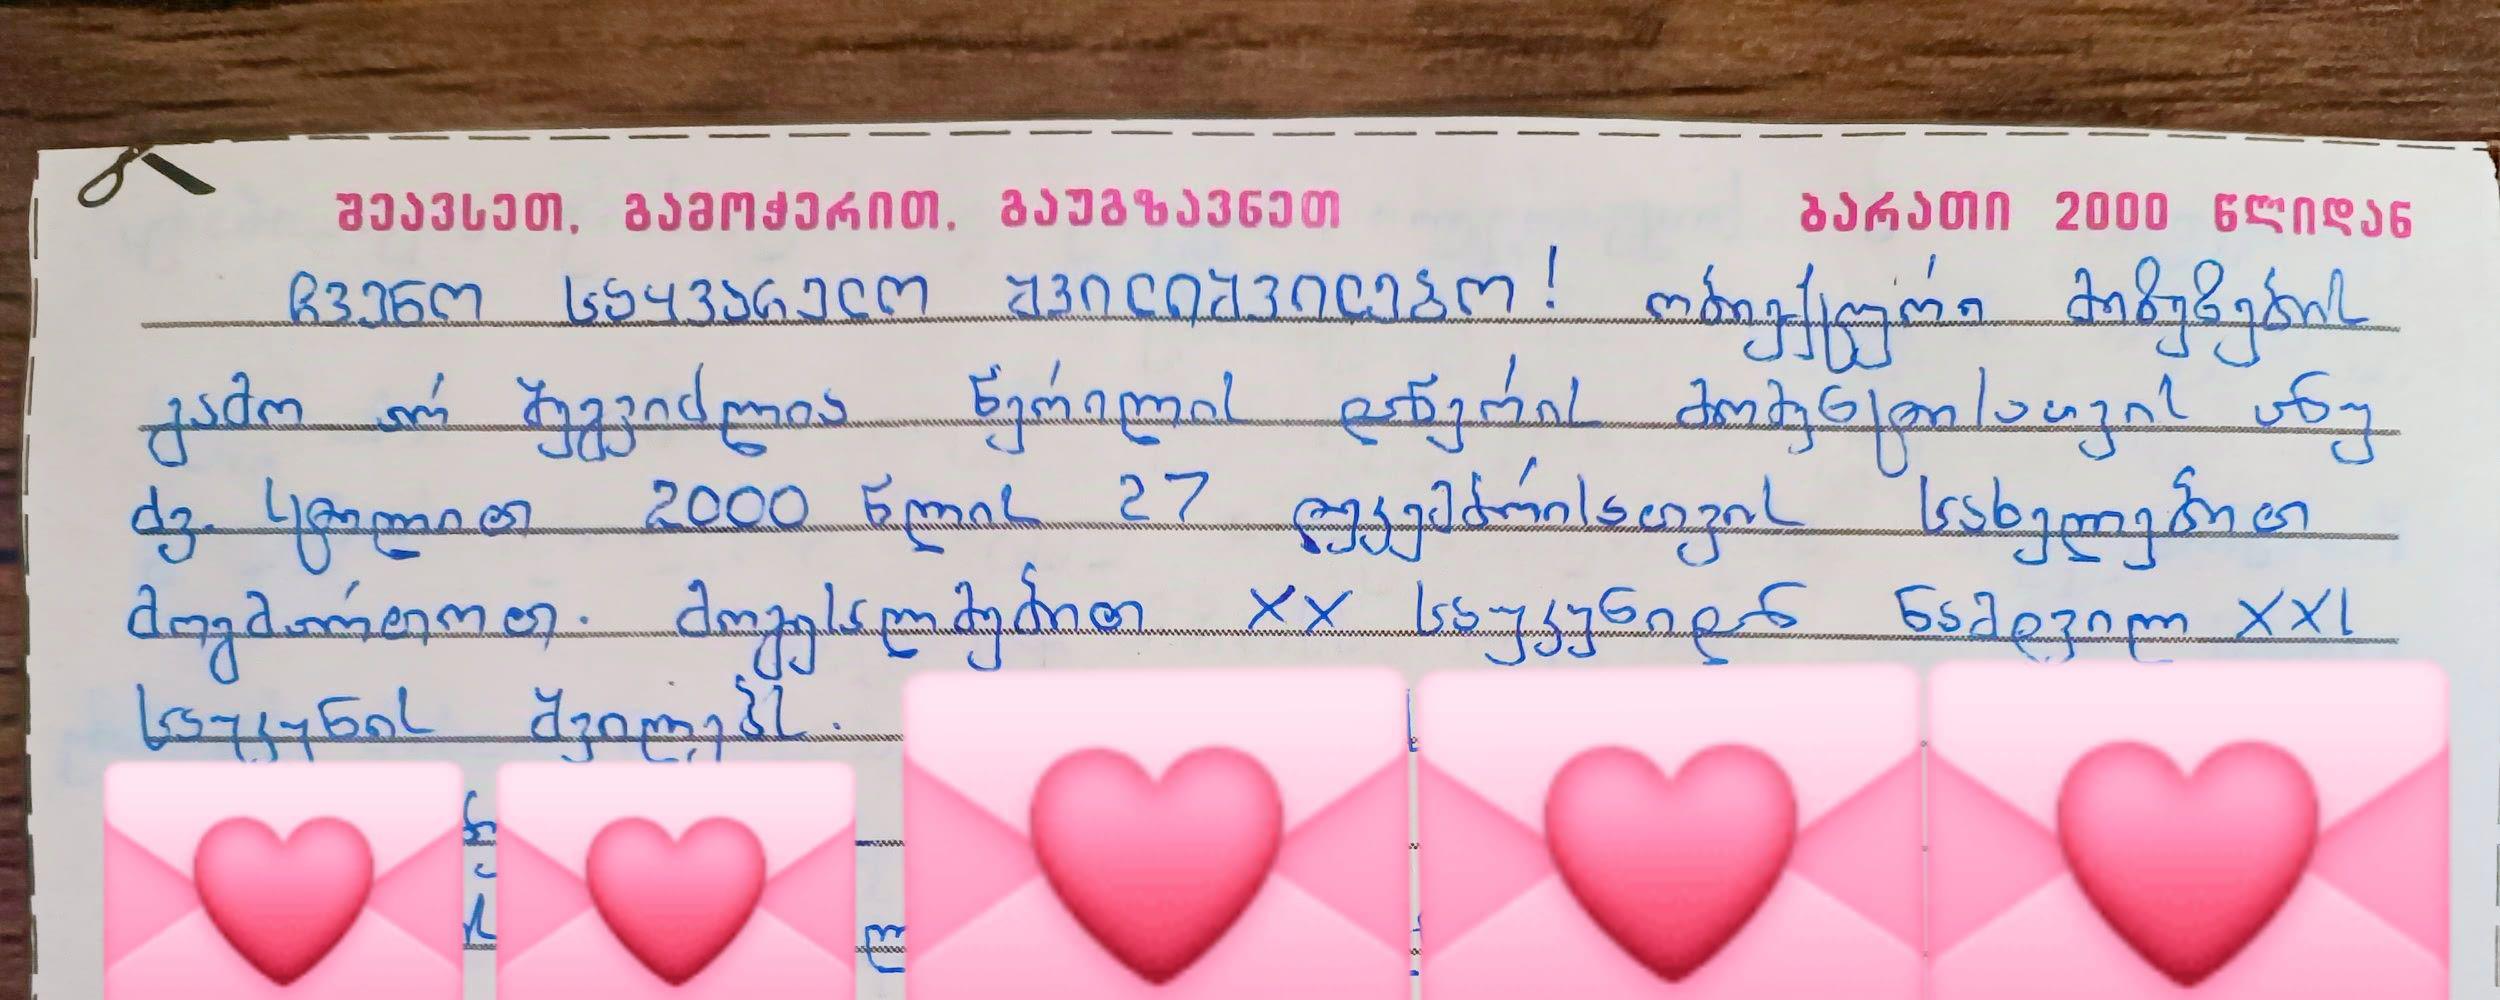 შეავსეთ, გამოჭერით, გაუგზავნეთ ბარათი 2000 წლიდან
ჩვენო საყვარელო შვილიშვილებო! ობიექტური მიზეზების
გამო არ შეგვიძლია წერილის დაწერის მომენტისათვის ანუ
ძვ. სტილით 2000 წლის 27 დეკემბრისათვის სახელებით
მოგმართოთ. მოგესალმებით XX საუკუნიდან ნამდვილ XXI
საუკუნის შვილებს.